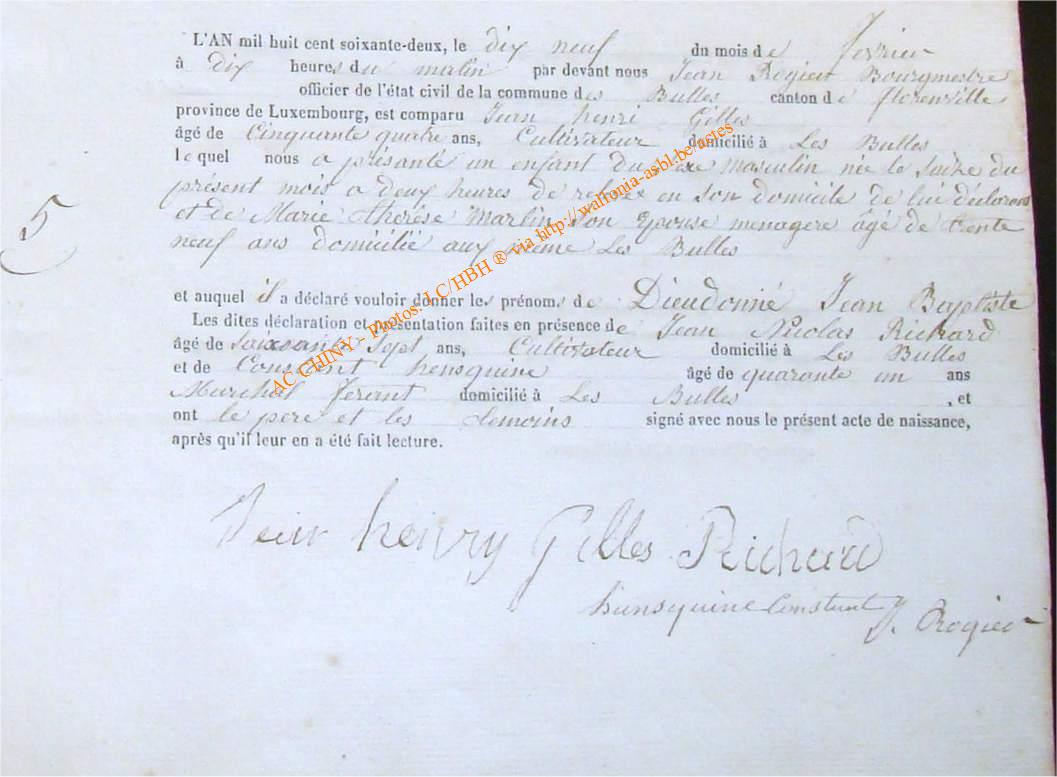 L'AN mil huit cent soixante-deux, le dix neuf du mois de fevrier
à dix heures du matin par devant nous Jean Rogier Bourgmestre
officier de l'état civil de la commune des Bulles canton de florenville
province de Luxembourg, est comparu Jean henri Gilles
âgé de Cinquante quatre ans, Cultivateur domicilié à Les Bulles
lequel nous a présanté un enfant du sexe masculin née le saize du
présent mois a deux heures de relevée en son domicile de lui déclarant
5
et de Marie thérèse Martin son épouse menagere âgé de trente
neuf ans domicilié aux même Les Bulles
et auquel il a déclaré vouloir donner les prénoms de Dieudonné Jean Baptiste
Les dites déclaration et présentation faites en présence de Jean Nicolas Richard
âgé de soixante sept ans, Cultivateur domicilié à Les Bulles
et de Constant hensquine âgé de quarante un ans
Marichal ferant domicilié à Les Bulles, et
ont le pere et les temoins signé avec nous le présent acte de naissance,
après qu'il leur en a été fait lecture.
Jean henry Gilles Richard
hunsquine Constant J. Rogier
AC CHINY - Photos: LC/HBH ® via http://wallonia-asbl.be/actes